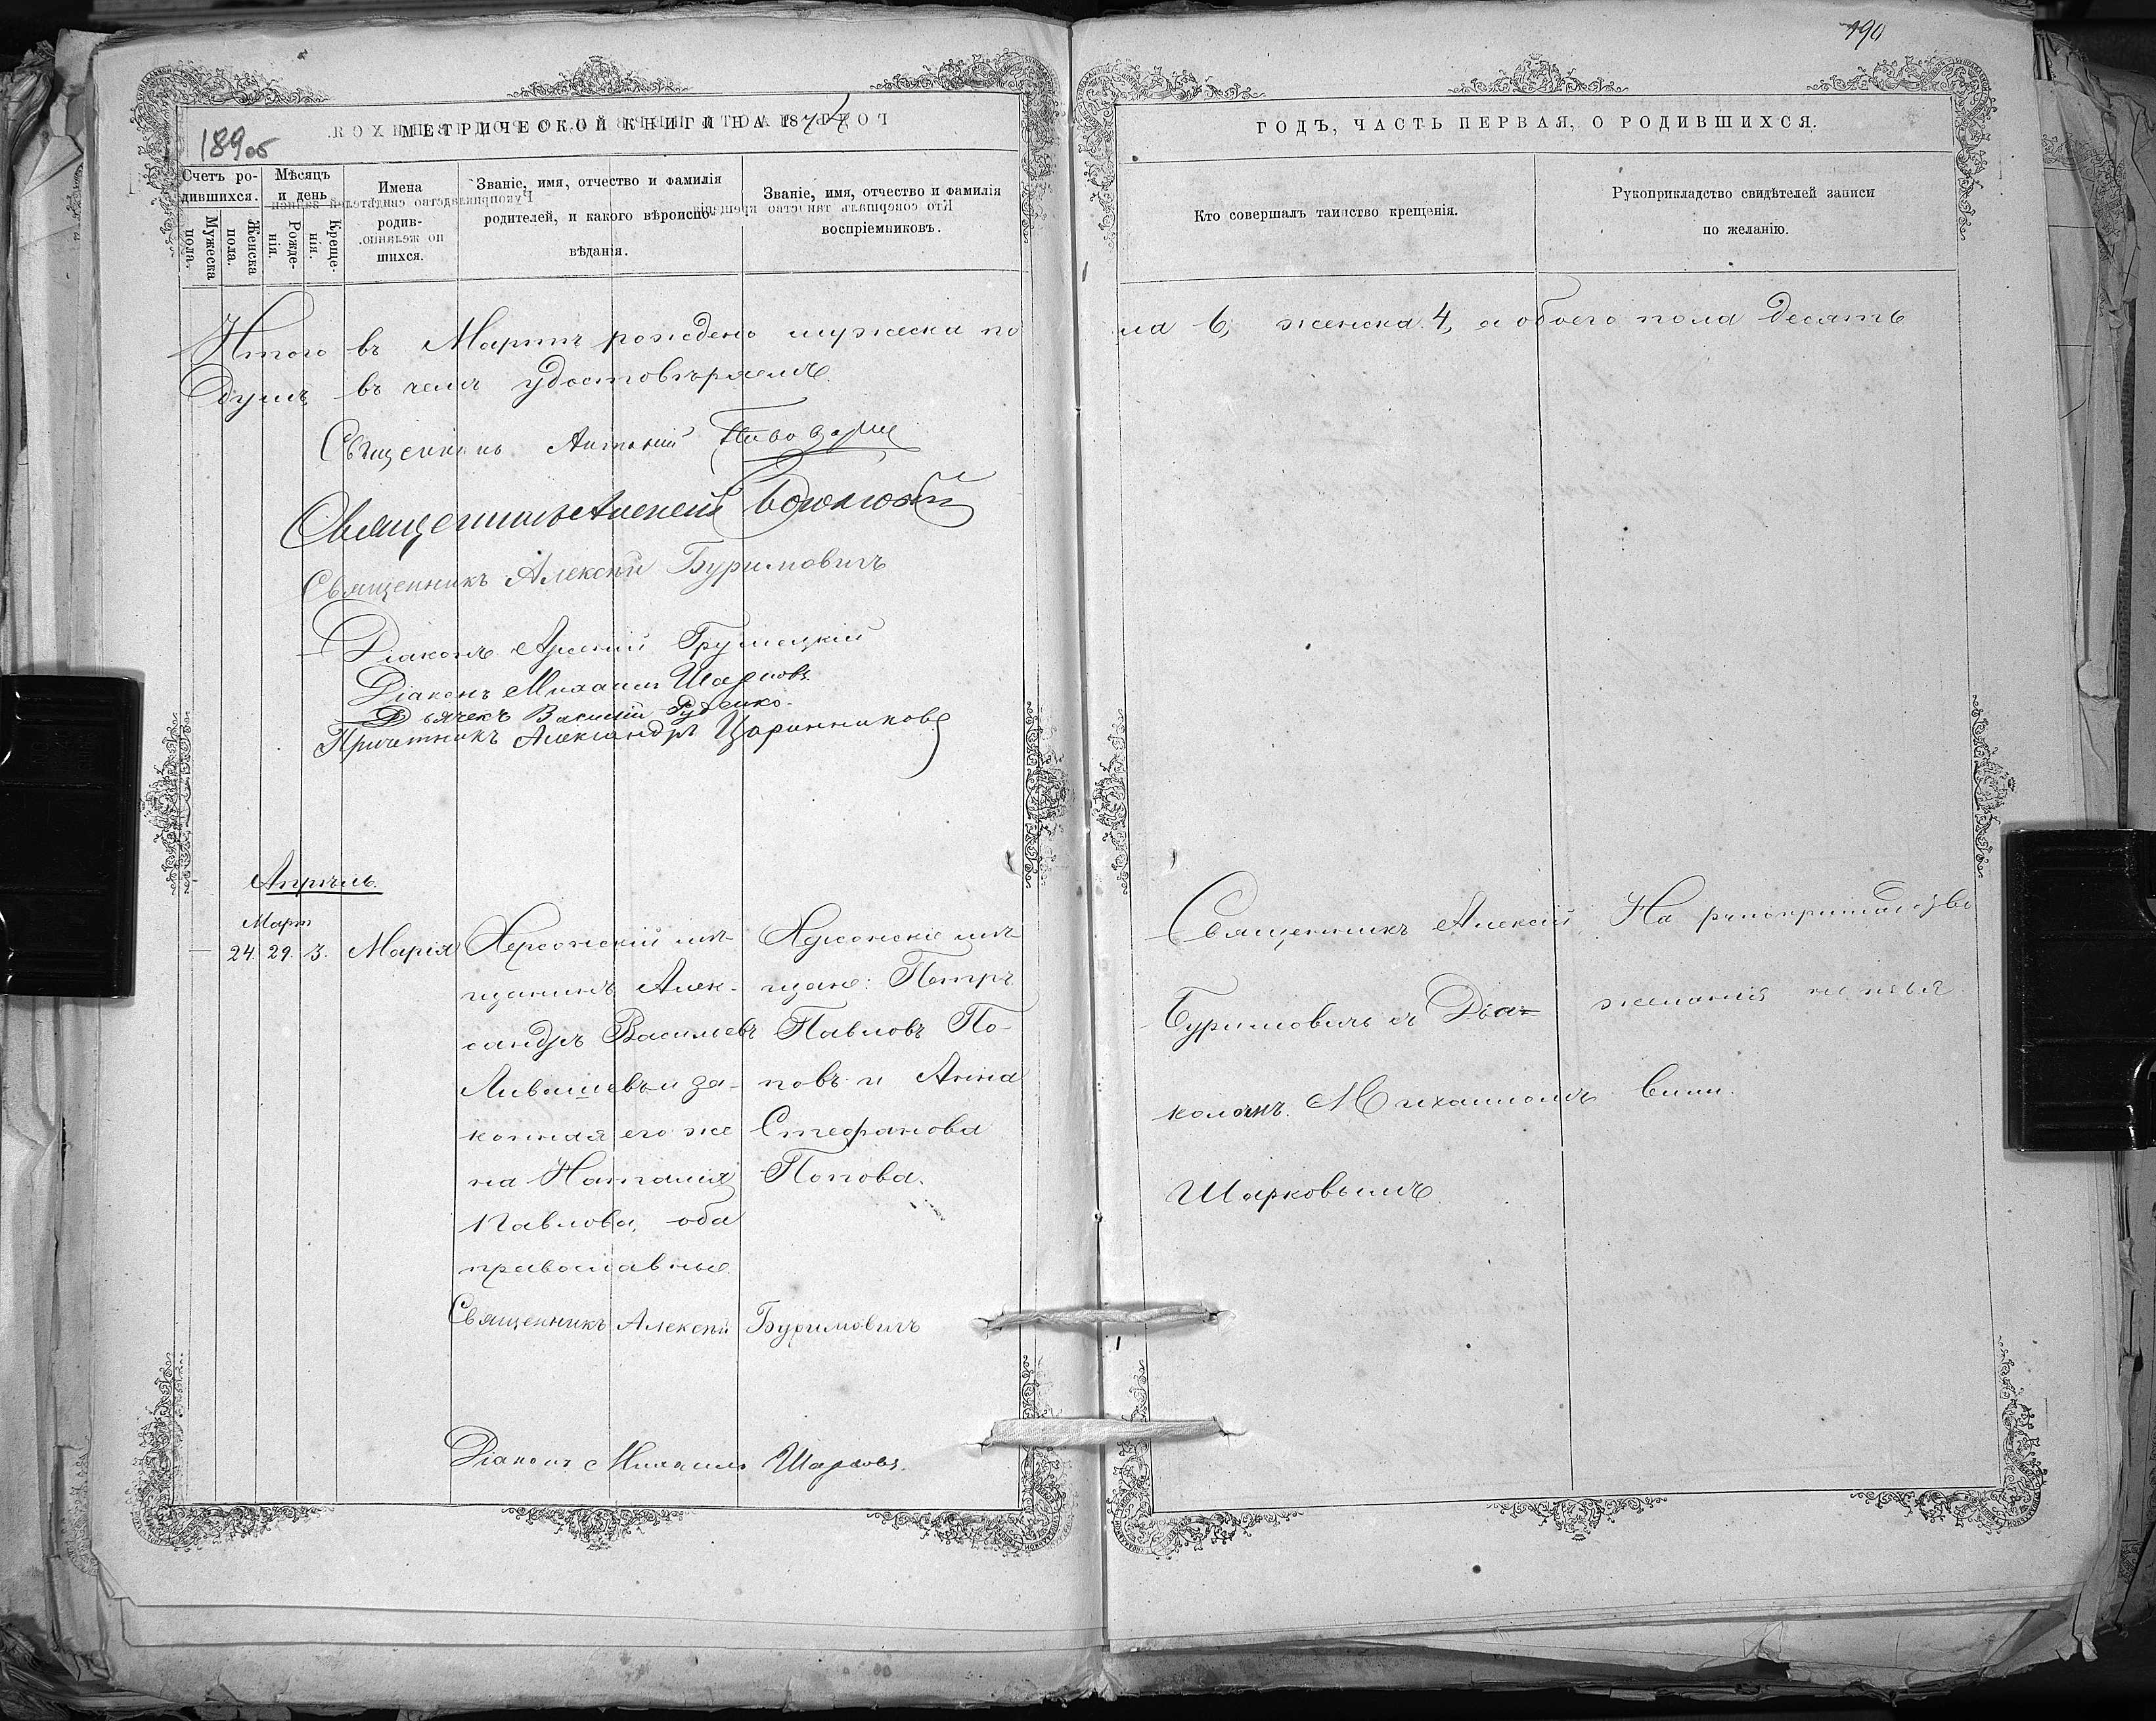 190
189об
МЕТРИЧЕСКОЙ КНИГИ НА 1874
ГОДЪ, ЧАСТЬ ПЕРВАЯ, О РОДИВШИХСЯ.
Счетъ ро-
дившихся.
Мужеска
пола.
Женска
пола.
Мѣсяцъ
и день
Рожде-
нія.
Креще-
нія.
Имена
родив-
шихся.
Званіе, имя, отчество и фамилія
родителей, и какого вѣроиспо-
вѣданія.
Званіе, имя, отчество и фамилія
воспріемниковъ.
Кто совершалъ таинство крещенія.
Рукоприкладство свидѣтелей записи
по желанію.
Итого въ Мартѣ рождено мужеска по
ла 6, женска 4, а обоего пола десять
душъ, въ чемъ удостовѣряемъ.
Священникъ Антоній
Священникъ Алексей
Священникъ Алексѣй Буримовичъ
Діаконъ Арсеній
Діаконъ Михаилъ Шарковъ.
Дьячекъ Василій Руденко.
Причетникъ Александръ Царинниковъ
Апрѣль.
Март
24. 29. 3. Марія
Херсонскій мѣ-
щанинъ Алек-
сандръ Васильевъ
Ливашевъ и за-
конная его же
на Наталія
Павлова, оба
православные.
Херсонскіе мѣ-
щане: Петръ
Павловъ По-
повъ и Анна
Стефанова
Попова.
Священникъ Алексій
Буримовичъ съ Діа-
кономъ Михаиломъ
Шарковымъ
На рукоприкладство
желанія не изъя
вили.
Священникъ Алексѣй Буримовичъ
Діаконъ Михаилъ Шарковъ.